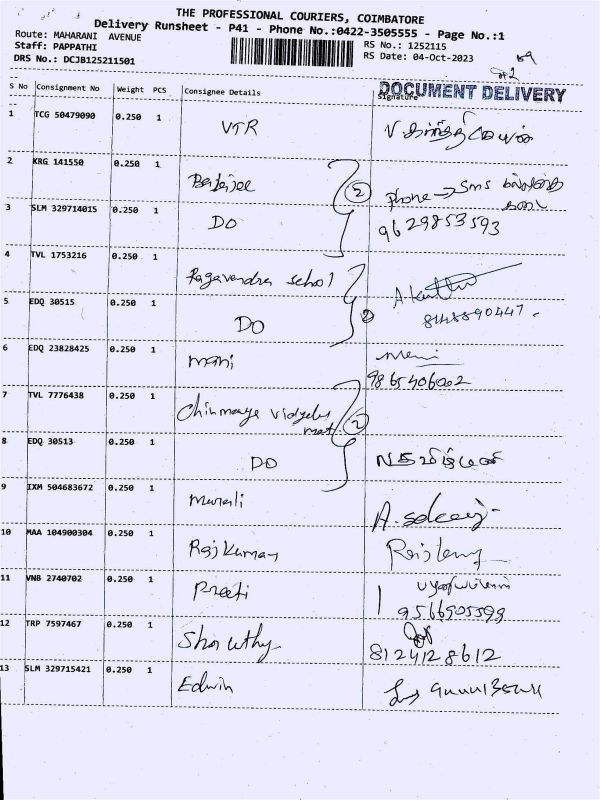 THE PROFESSIONAL COURIERS, COIMBATORE
Delivery Runsheet - P41 - Phone No.:0422-3505555 - Page No.:1
Route: MAHARANI AVENUE
RS No.: 1252115
Staff: PAPPATHI
RS Date: 04-Oct-2023
DRS No.: DCJB125211501
DOCUMENT DELIVERY
S No Consignment No Weight PCS Consignee Details Signature
1 TCG 50479090 0.250 1 VTR
2 KRG 141550 0.250 1
phone → SMS
3 SLM 329714015 0.250 1 DO 9629853593
2
4 TVL 1753216 0.250 1 Ragavendra school
5 EDQ 30515 0.250 1 DO 2
8148890447
6 EDQ 23828425 0.250 1 mani Mani
9865406002
7 TVL 7776438 0.250 1 Chinmaya 2
8 EDQ 30513 0.250 1 DO
9 IXM 504683672 0.250 1 Murali A.
10 MAA 104900304 0.250 1 Rajkumar
11 VNB 2740702 0.250 1 Preeti
9566905599
12 TRP 7597467 0.250 1 Shruthy 8124128612
13 SLM 329715421 0.250 1 Edwin